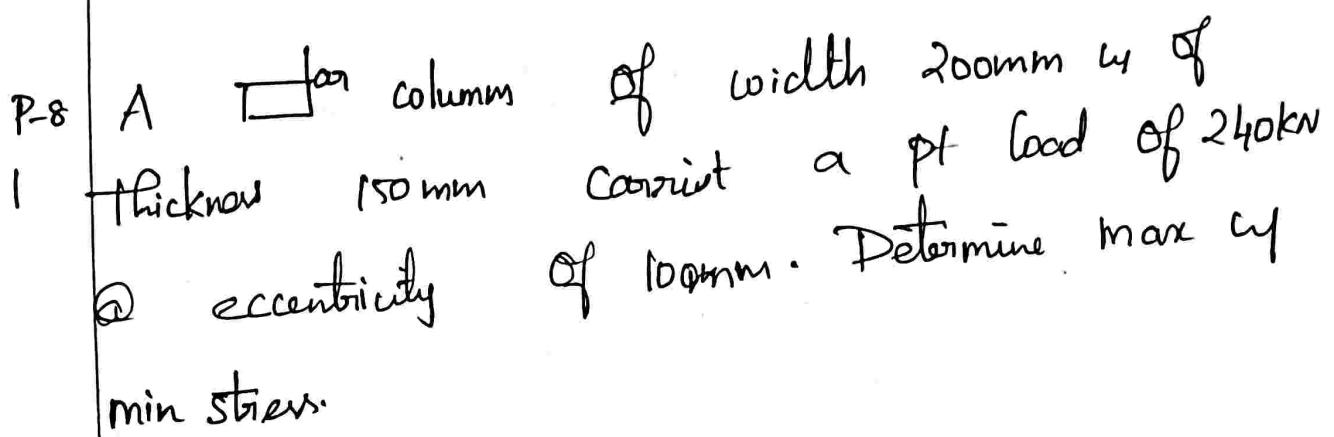 P-8 A ar column of width 200mm & of
1 thickness 150 mm carries a pt load of 240kN
@ eccentricity of 100mm. Determine max &
min stress.